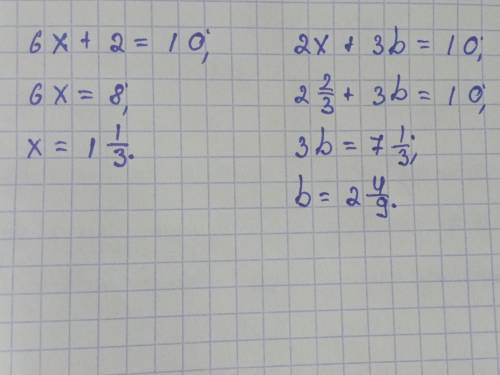 6x + 2 = 10;
6x = 8;
x = 1 1/3.
2x + 3b = 10;
2 2/3 + 3b = 10;
3b = 7 1/3;
b = 2 4/9.